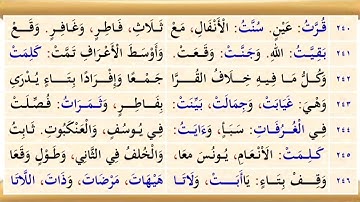 ٢٤٠ قُرَّتُ: عَيْنٍ. سُنَّتُ: الْأَنْفَالِ، مَعْ ثَلَاثِ، فَاطِرٍ، وَغَافِرٍ. وَقَعْ
٢٤١ بَقِيَّتُ: اللَّهِ. وَجَنَّتْ: وَقَعَتْ. وَأَوْسَطَ الْأَعْرَافِ تَمَّتْ: كَلِمَتْ
٢٤٢ وَكُلُّ مَا فِيهِ خِلَافُ الْقُرَّا جَمْعًا وَإِفْرَادًا بِتَاءٍ يُدْرَى
٢٤٣ وَهِيَ: غَيَابَتُ، وَجِمَالَتٌ، بَيِّنَتْ: بِفَاطِرٍ، وَثَمَرَاتٌ: فُصِّلَتْ
٢٤٤ فِي الْغُرُفَاتِ: سَبَأٍ، وَءَايَتٌ: فِي يُوسُفٍ، وَالْعَنْكَبُوتِ. ثَابِتُ
٢٤٥ كَلِمَتُ: الْأَنْعَامِ، يُونُسَ مَعَا، وَالْخُلْفُ فِي الثَّانِي، وَطَوْلٍ وَقَعَا
٢٤٦ وَقِفْ بِتَاءٍ: يَاأَبَتْ، وَلَاتَا هَيْهَاتَ، مَرْضَاتَ، وَذَاتَ، اللَّاتَا